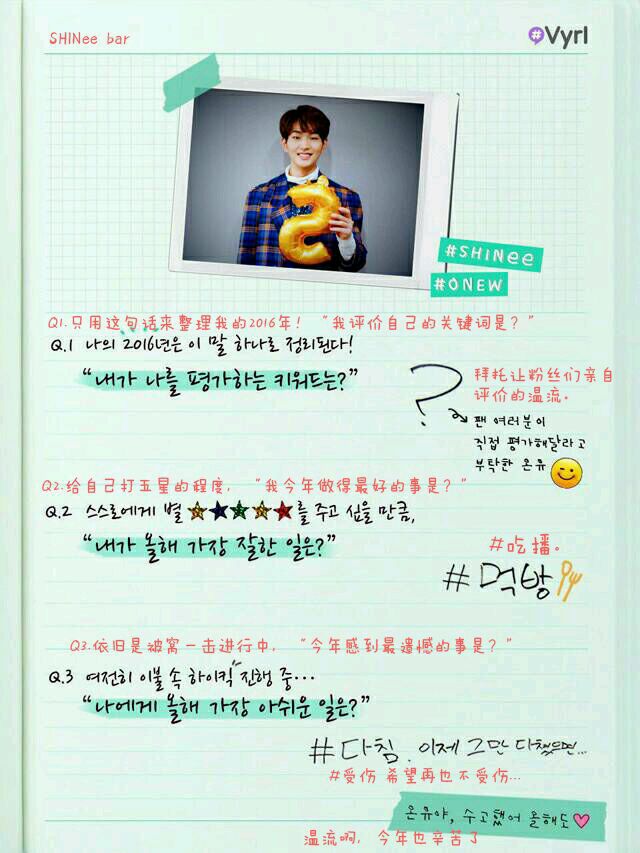 SHINee bar
#Vyrl
#SHINee
#ONEW
Q1.只用这句话来整理我的2016年! “我评价自己的关键词是?”
Q.1 나의 2016년은 이 말 하나로 정리된다!
“내가 나를 평가하는 키워드는?”
?
拜托让粉丝们亲自
评价的温流。
팬 여러분이
직접 평가해달라고
부탁한 온유
Q2.给自己打五星的程度, “我今年做得最好的事是?”
Q.2 스스로에게 별 ★★★★★를 주고 싶을 만큼,
“내가 올해 가장 잘한 일은?”
#吃播。
#먹방
Q3.依旧是被窝一击进行中, “今年感到最遗憾的事是?”
Q.3 여전히 이불 속 하이킥 진행 중···
“나에게 올해 가장 아쉬운 일은?”
#다침. 이제 그만 다쳤으면...
#受伤 希望再也不受伤...
온유야, 수고했어 올해도♥
温流啊, 今年也辛苦了